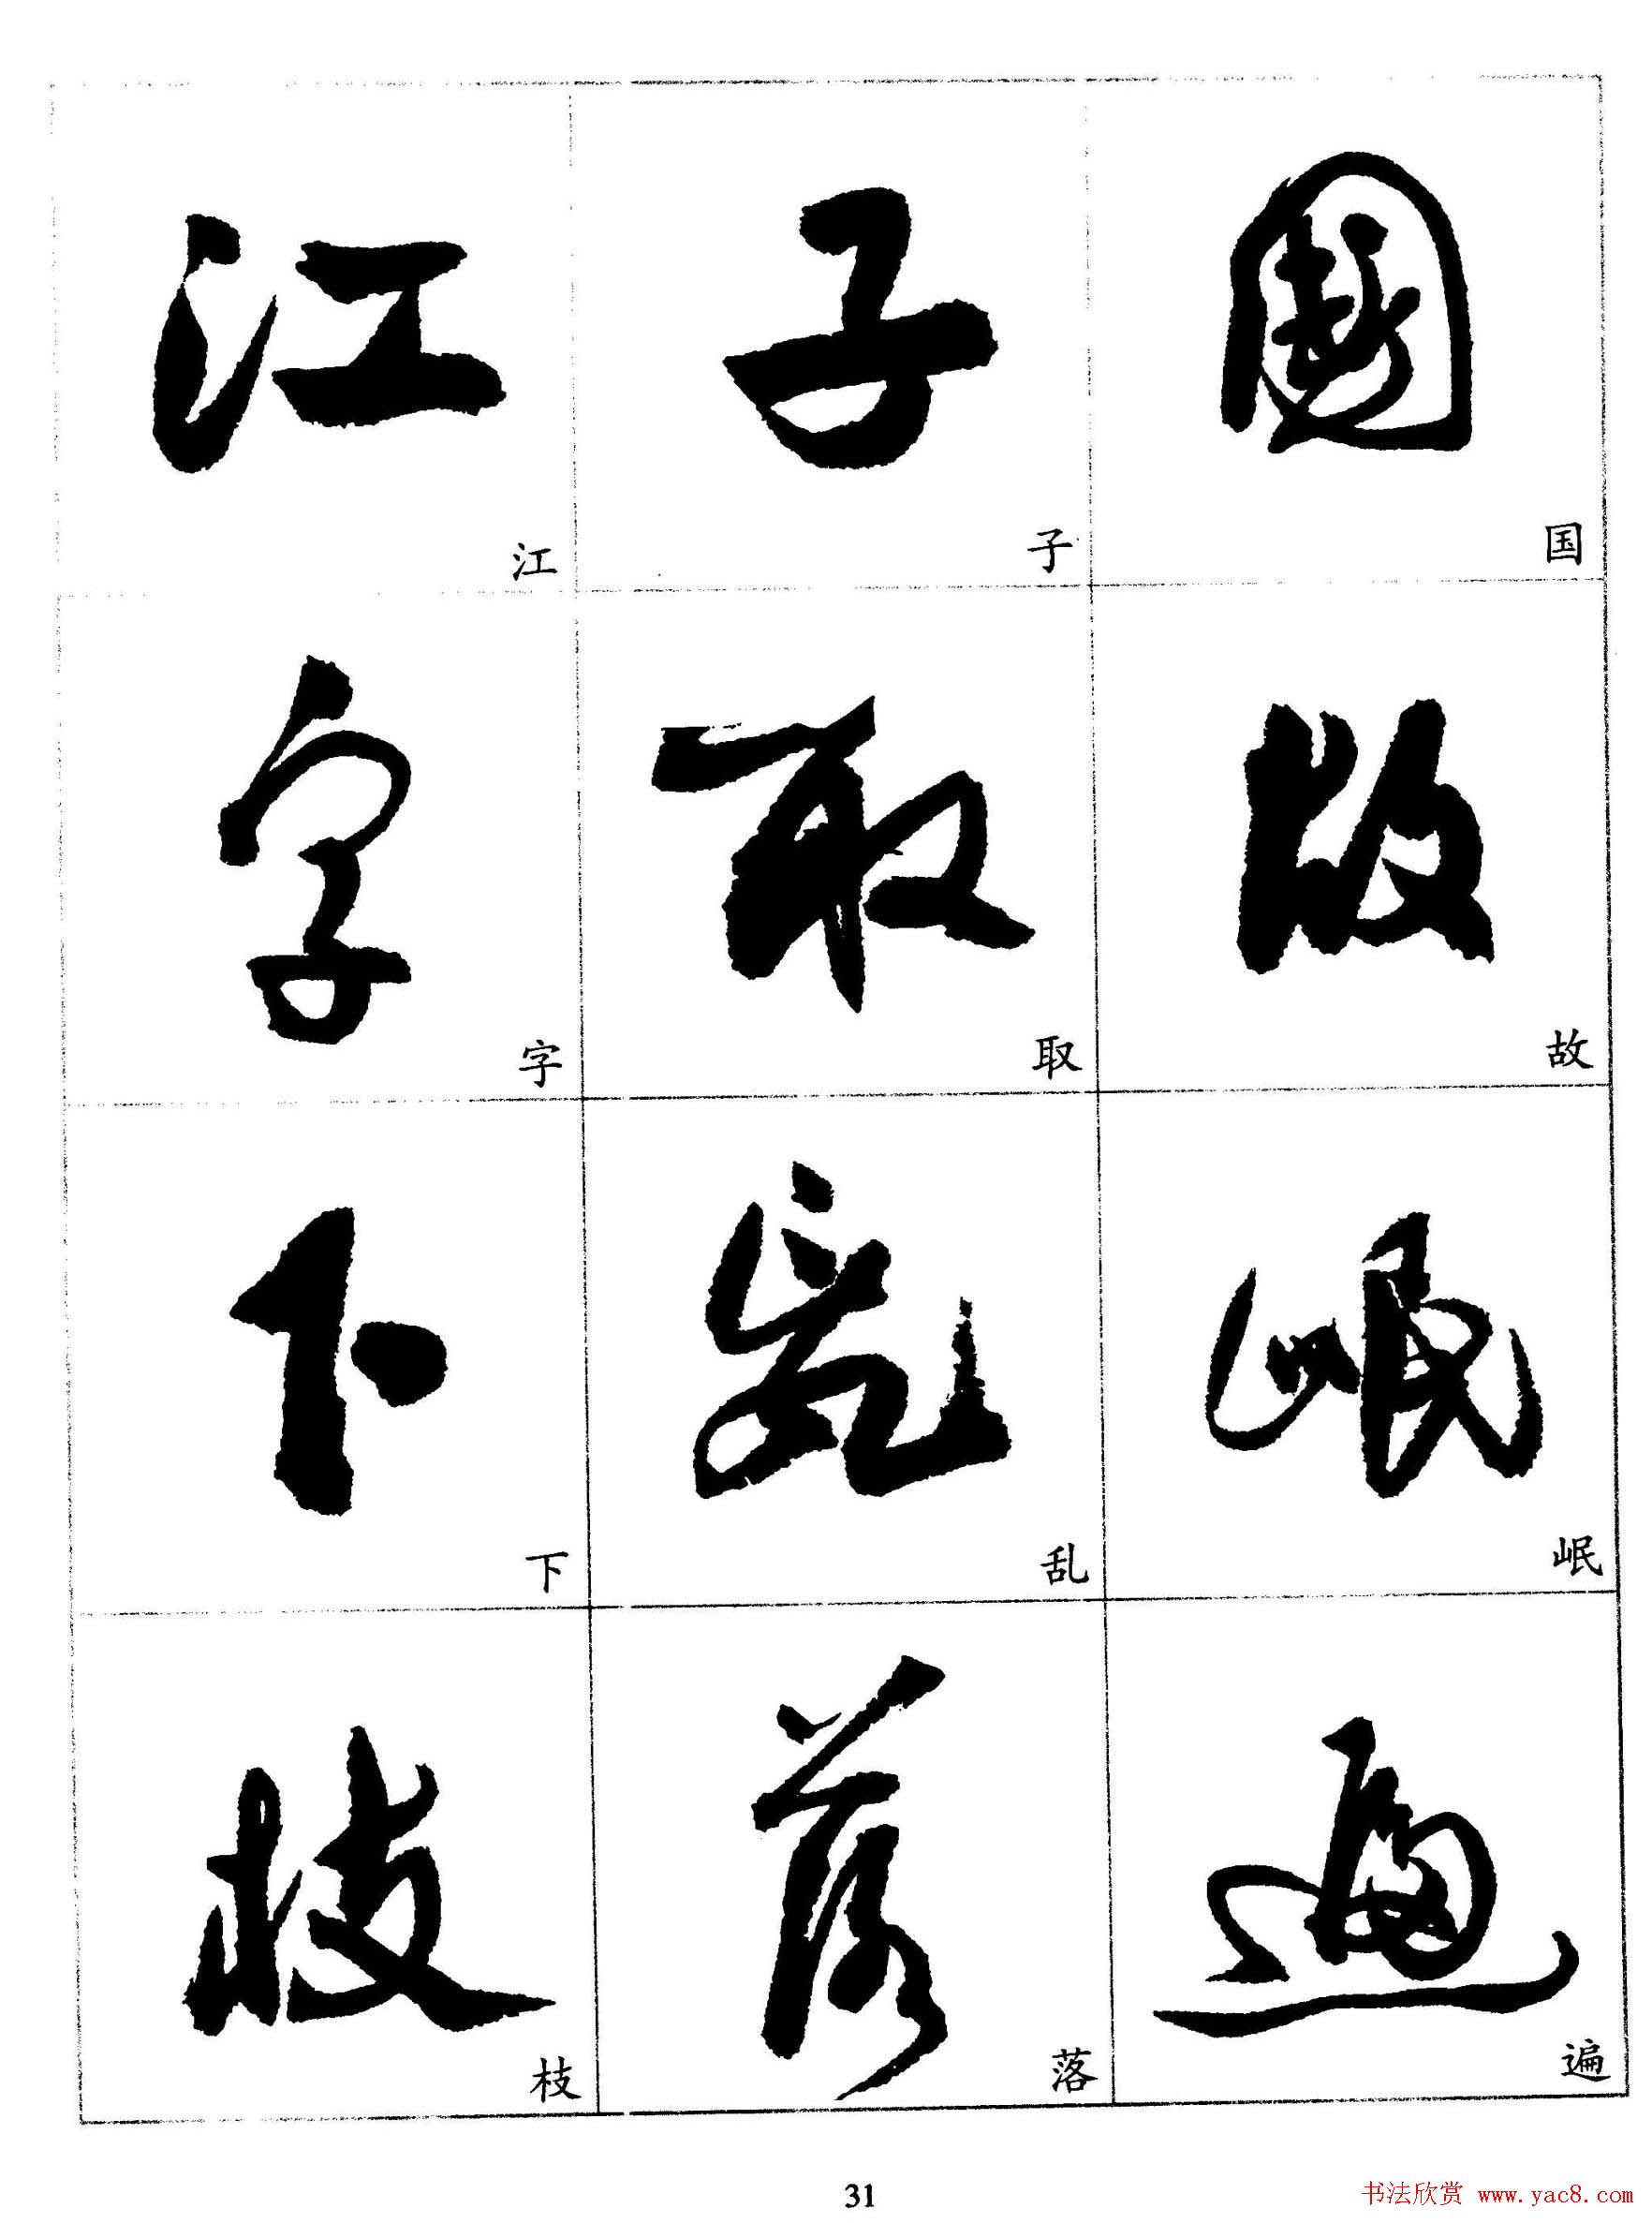 國 故 岷 遍
国 故 岷 遍
子 取 亂 落
子 取 乱 落
江 字 下 枝
江 字 下 枝
31
书法欣赏 www.yac8.com